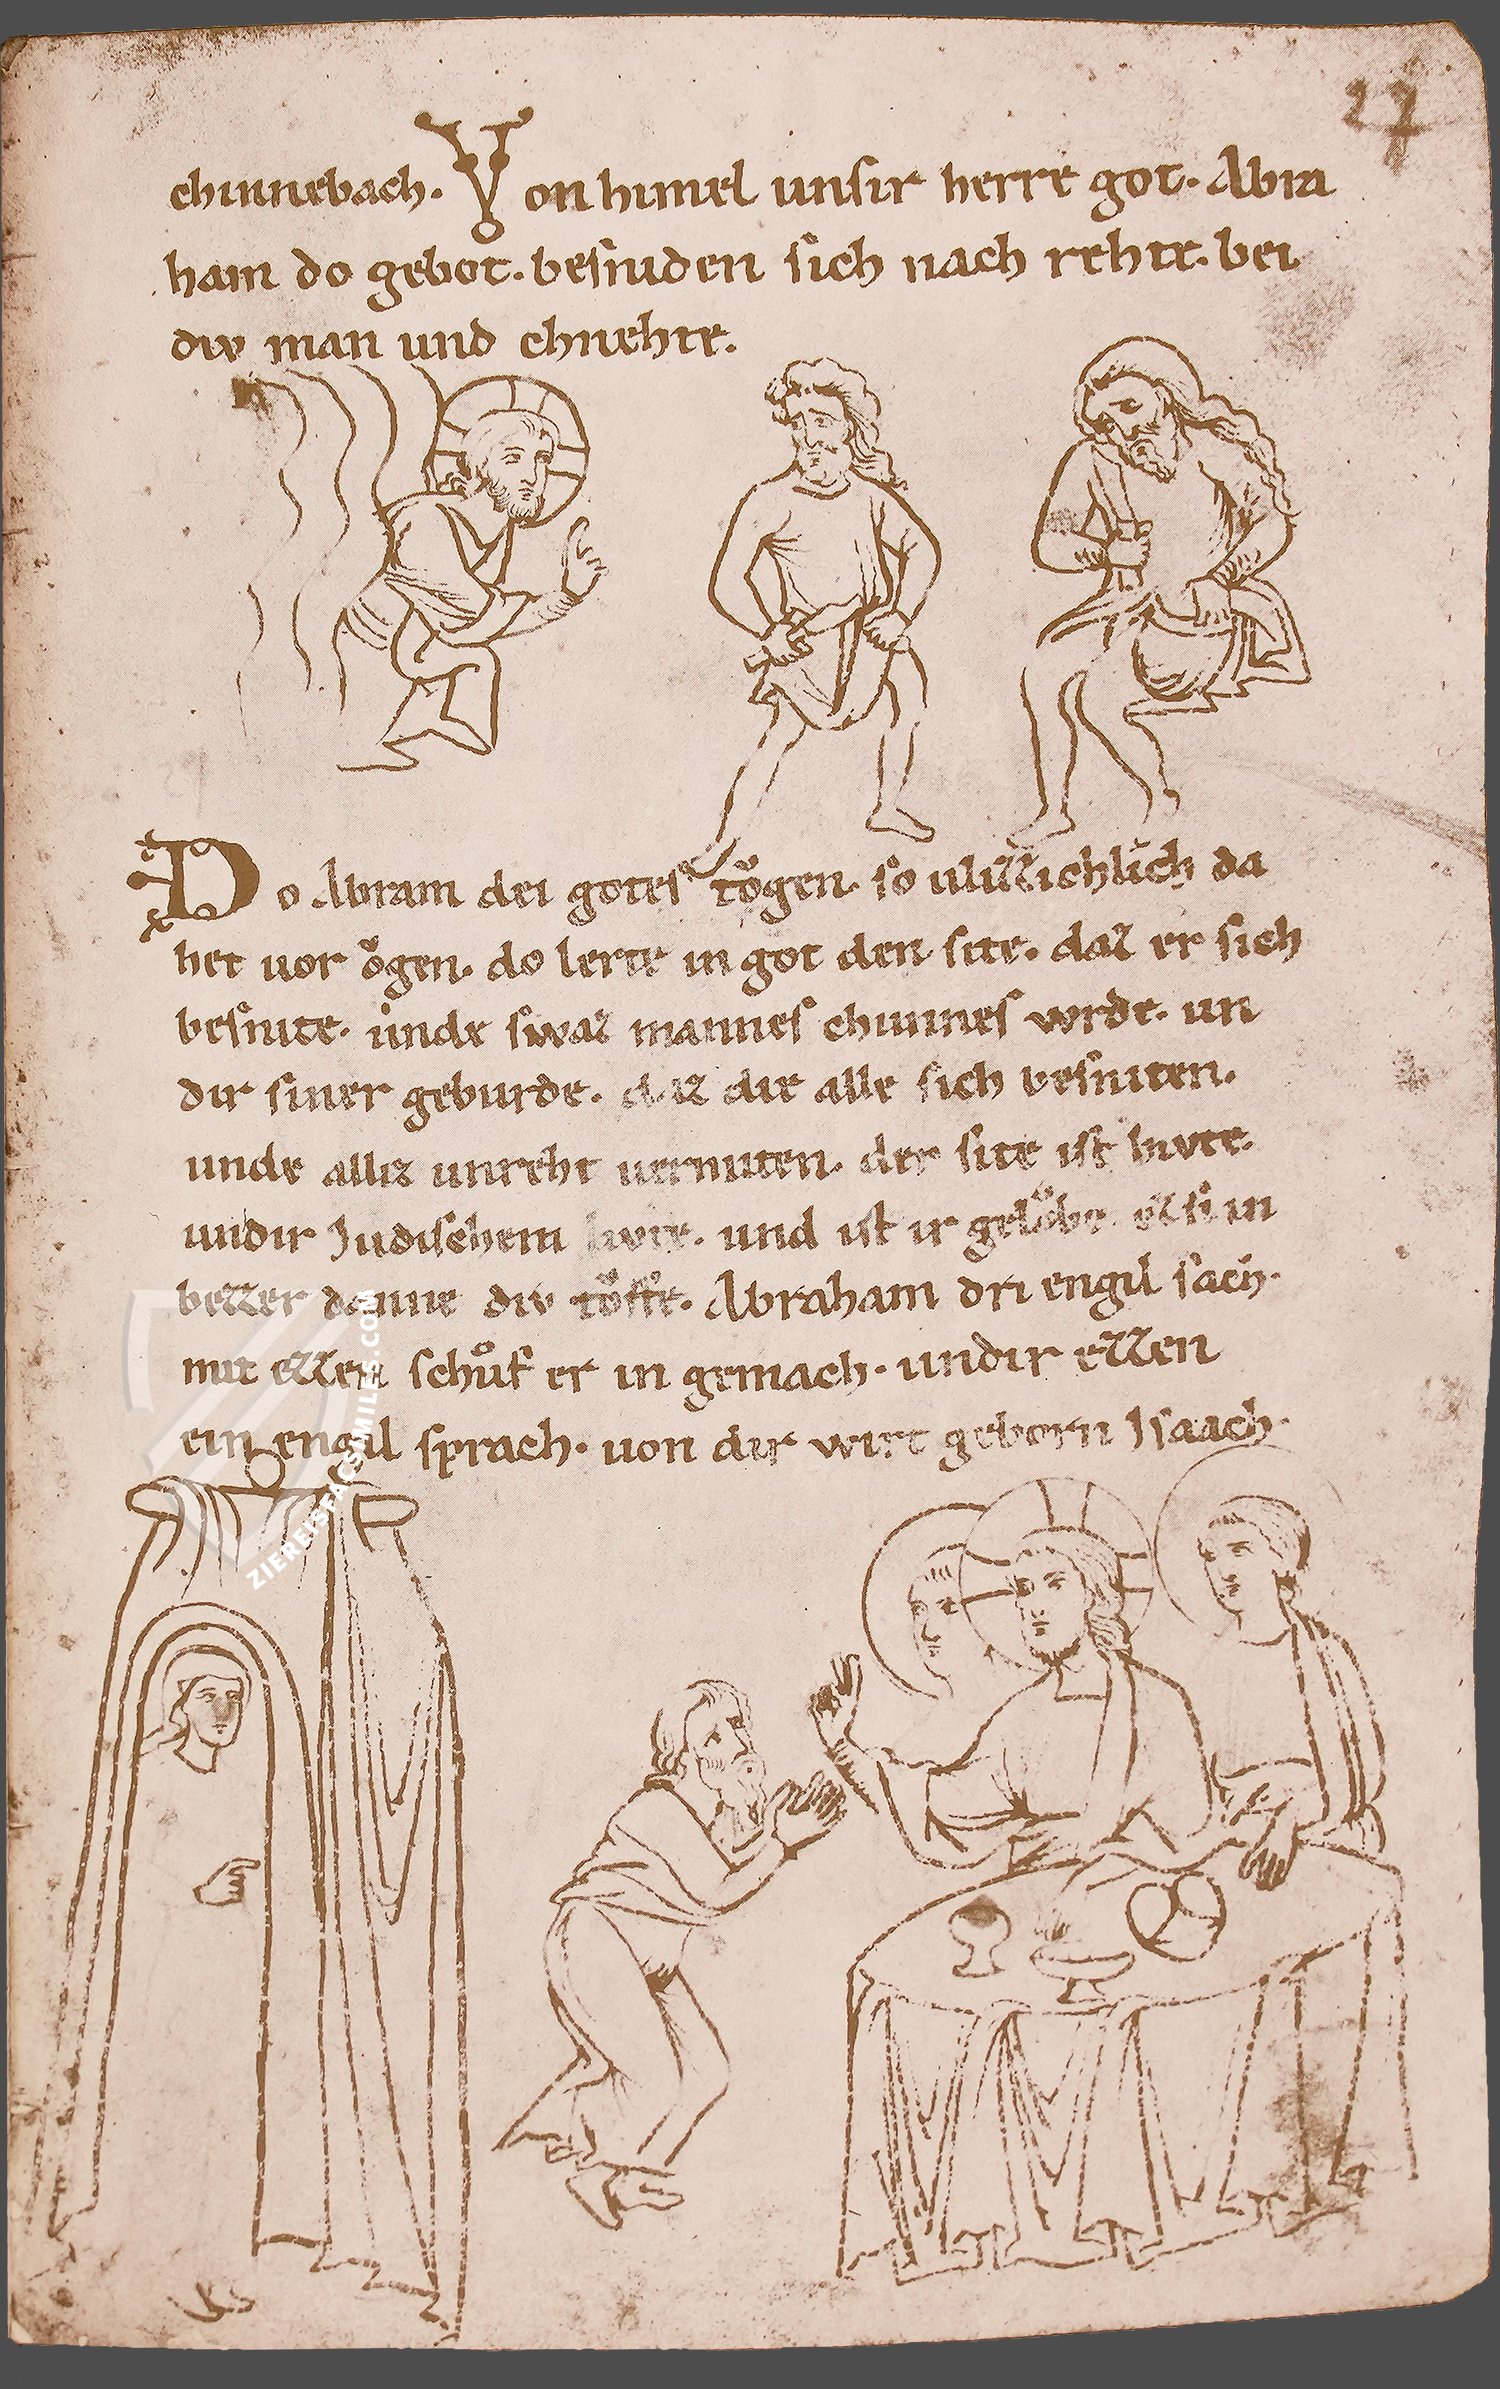 27
chinnebach. Von himel unsir herre got. Abra
ham do gebot. besniden sich nach rehte. bei
div man und chnehte.
Do Abram dei gotes tǒgen. so da
het uor ǒgen. do lerte in got den site. daz er sich
besnite. unde swaz mannes chunnes wrde. un
dir siner geburde. daz die alle sich besniten.
unde alliz unreht uermiten. der site ist hivte.
undir Judischem livte. und ist ir gelǒbe ez si in
bezzer danne div tǒffe. Abraham dri engil sach.
mit ezzen schůf er in gemach. undir ezzen
ein engil sprach. uon dir wirt geborn Isaach.
ZIEREISFACSIMILES.COM